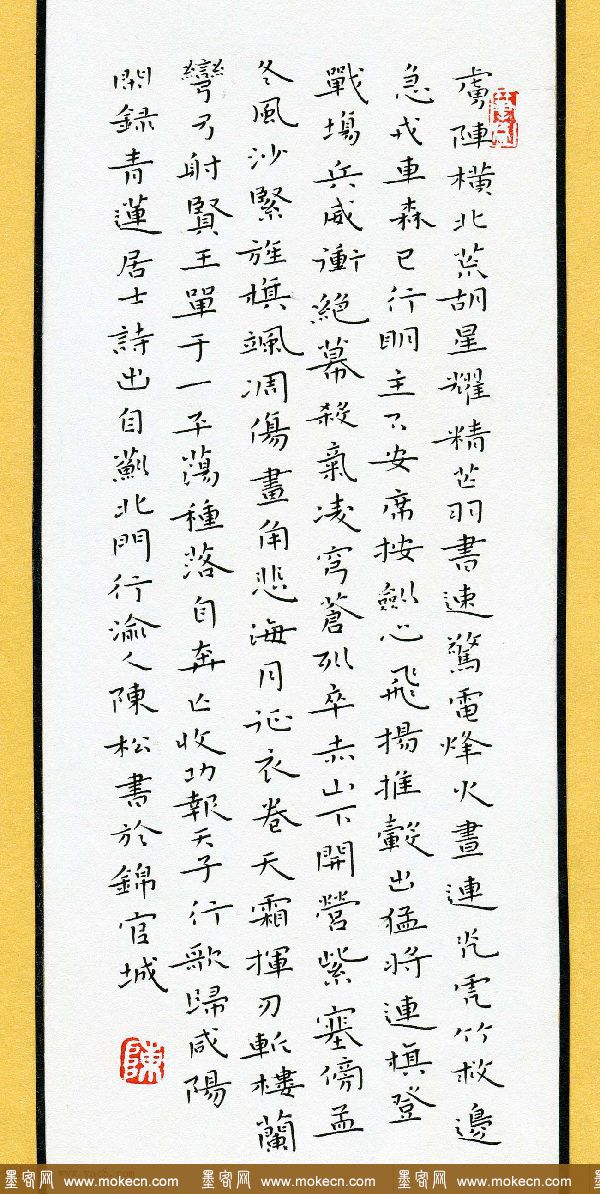 虜陣橫北荒胡星耀精芒羽書速驚電烽火晝連光虎竹救邊
急戎車森已行明主不安席按劍心飛揚推轂出猛將連旗登
戰場兵威衝絕幕殺氣凌穹蒼列卒赤山下開營紫塞傍孟
冬風沙緊旌旗颯凋傷畫角悲海月征衣卷天霜揮刃斬樓蘭
彎弓射賢王單于一平蕩種落自奔亡收功報天子行歌歸咸陽
閑錄青蓮居士詩出自薊北門行渝人陳松書於錦官城
陳
墨客网 www.mokecn.com 墨客网 www.mokecn.com 墨客网 www.mokecn.com